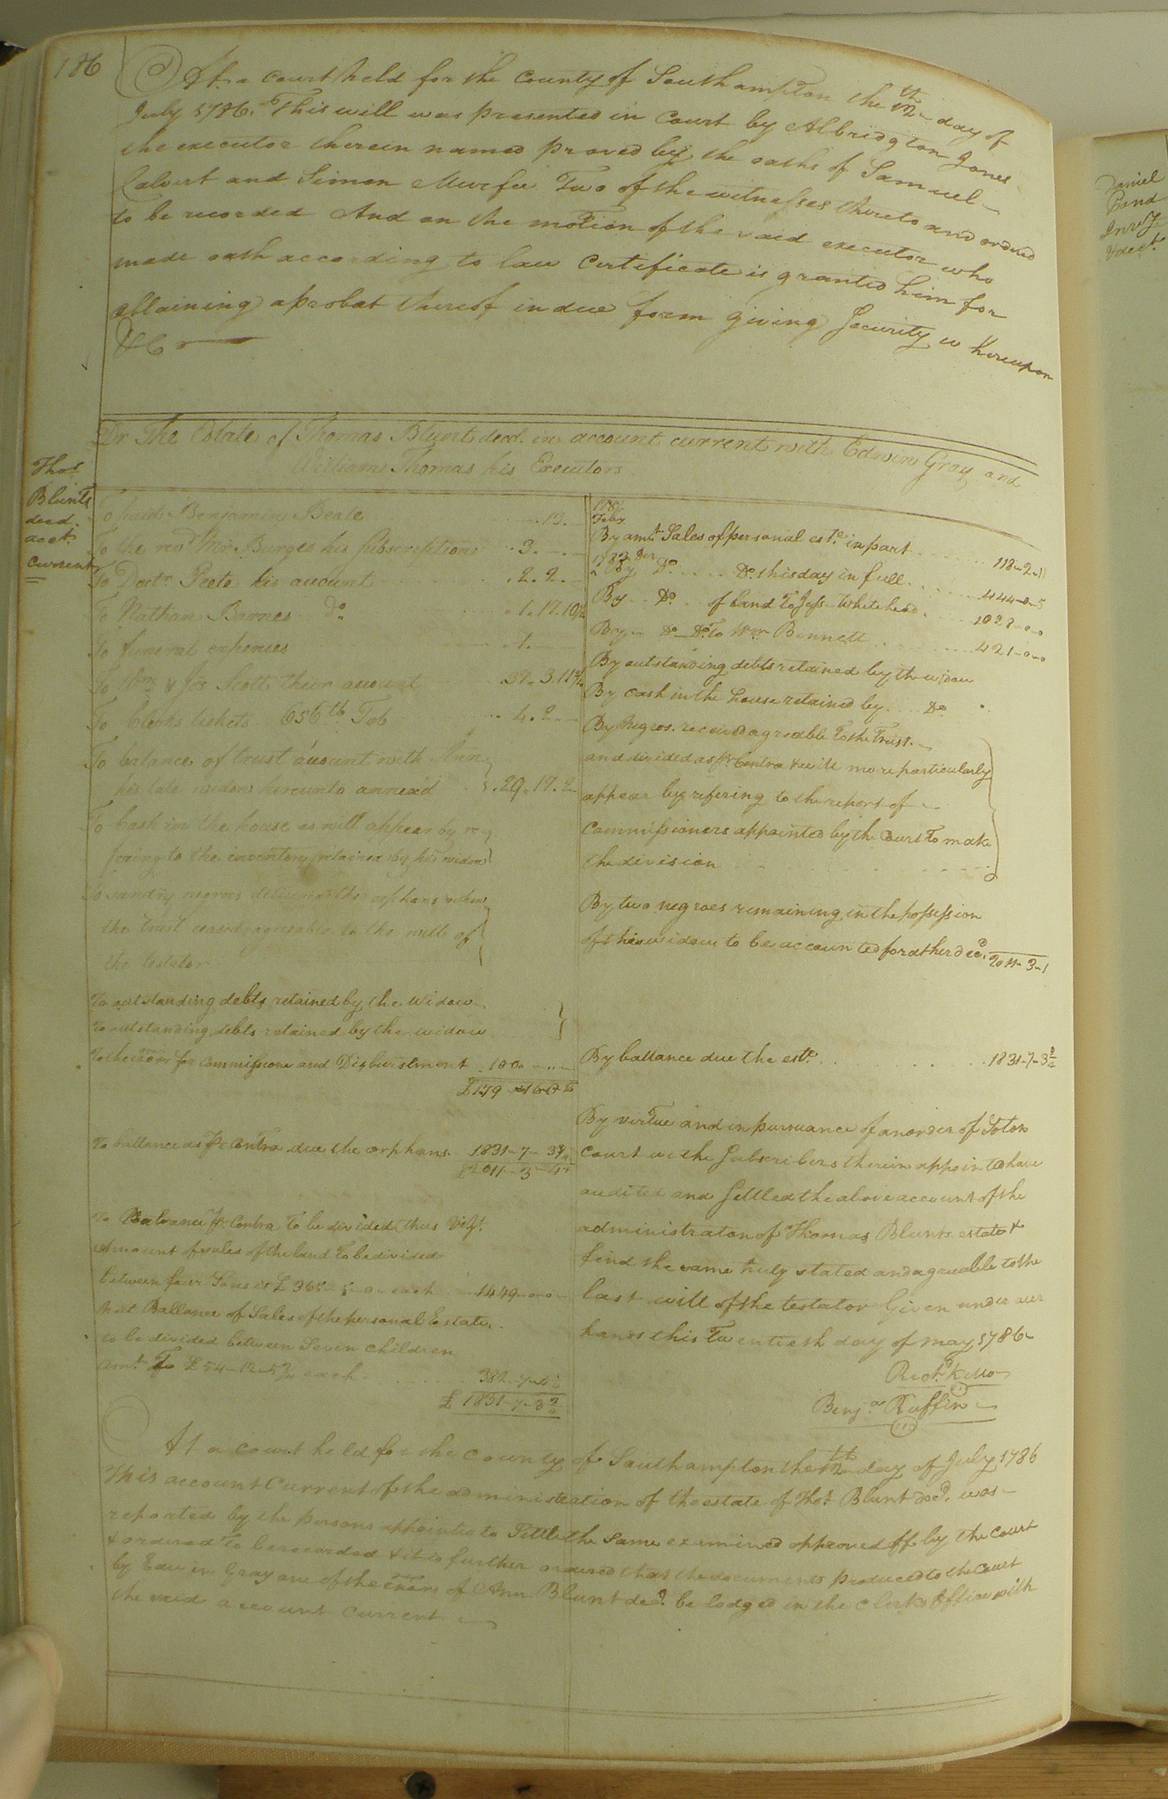 186
At a Court held for the County of Southampton the 12th day of
July 1786. This will was presented in Court by Albridgton Jones
the executor therein named proved by the oaths of Samuel
Calvert and Simon Murfee Two of the witnesses thereto and ordered
to be recorded And on the motion of the said executor who
made oath according to law Certificate is granted him for
obtaining a probat thereof in due form giving Security whereupon
&C
Dr The Estate of Thomas Blunt decd. in account current with Edwin Gray and
William Thomas his Executors
Thos.
Blunts
decd.
acct.
Current
To paid Benjamin Beale .. 13.
To the revd. Mr. Burges his subscription .. 3. -
To Doctr. Peete his account .. 2. 2. -
To Nathan Barnes Do. 1. 17. 10½
To funeral expenses 1. -
To Wm. & Jas. Scott their account 37. 3. 11¾
To Clerks tickets 656 lb Tob .. 4. 2. -
To balance of trust account with Ann
his late widow hereunto annex'd .. 29. 17. 2
To Cash in the house as will appear by re
fering to the inventory retained by his widow
To sundry negroes delivered the orphans when
the trust agreeable to the will of
the testator
To outstanding debts retained by the widow
To outstanding debts retained by the widow
To the Exors for commissions and Disburstment 100
£179
To ballance as Pr Contra due the orphans. 1831-7-3½
£2011-3-
To Balance Pr Contra To be divided thus Vizt.
Amount of sales of the land To be divided
between four Sons is £365-5-0 each 1449-0-0
Nett Ballance of Sales of the personal Estate
to be divided between Seven Children
Amt. To £54-12-5½ each 382-7-
£1831-7-3½
1786
Feby
By amt. Sales of personal este. in part 118-2-11
By Do. Do. this day in full 444-0-5
By Do. of land To Jesse Whitehead 1028-0-0
By Do. Do. To Wm Bennett 421-0-0
By outstanding debts retained by the widow
By cash in the house retained by Do
By Negroes received agreable To the Trust
and divided as Pr Contra & will more particularly
appear by refering to the report of
Commissioners appointed by the Court To make
the division
By two negroes remaining in the possession
of the widow to be accounted for at her decd. 2011-3-1
By ballance due the este. 1831-7-3½
By virtue and in pursuance of an order of Soton
Court we the Subscribers therein appointed have
audited and Settled the above account of the
administration of Thomas Blunts estate &
find the same truly stated and agreeable to the
last will of the testator Given under our
hands this Twentieth day of May 1786
Richd. Kello
Benjn. Ruffin
At a court held for the County of Southampton the 12th day of July 1786
This account Current of the administration of the estate of Thos. Blunt decd. was
reported by the persons appointed to Settle the same examined approved off by the Court
& ordered To be recorded & it is further ordered that the documents produced to the Court
by Edwin Gray one of the Exors of Ann Blunt decd. be lodged in the Clerks Office with
the said account current
Daniel
Band
Invy.